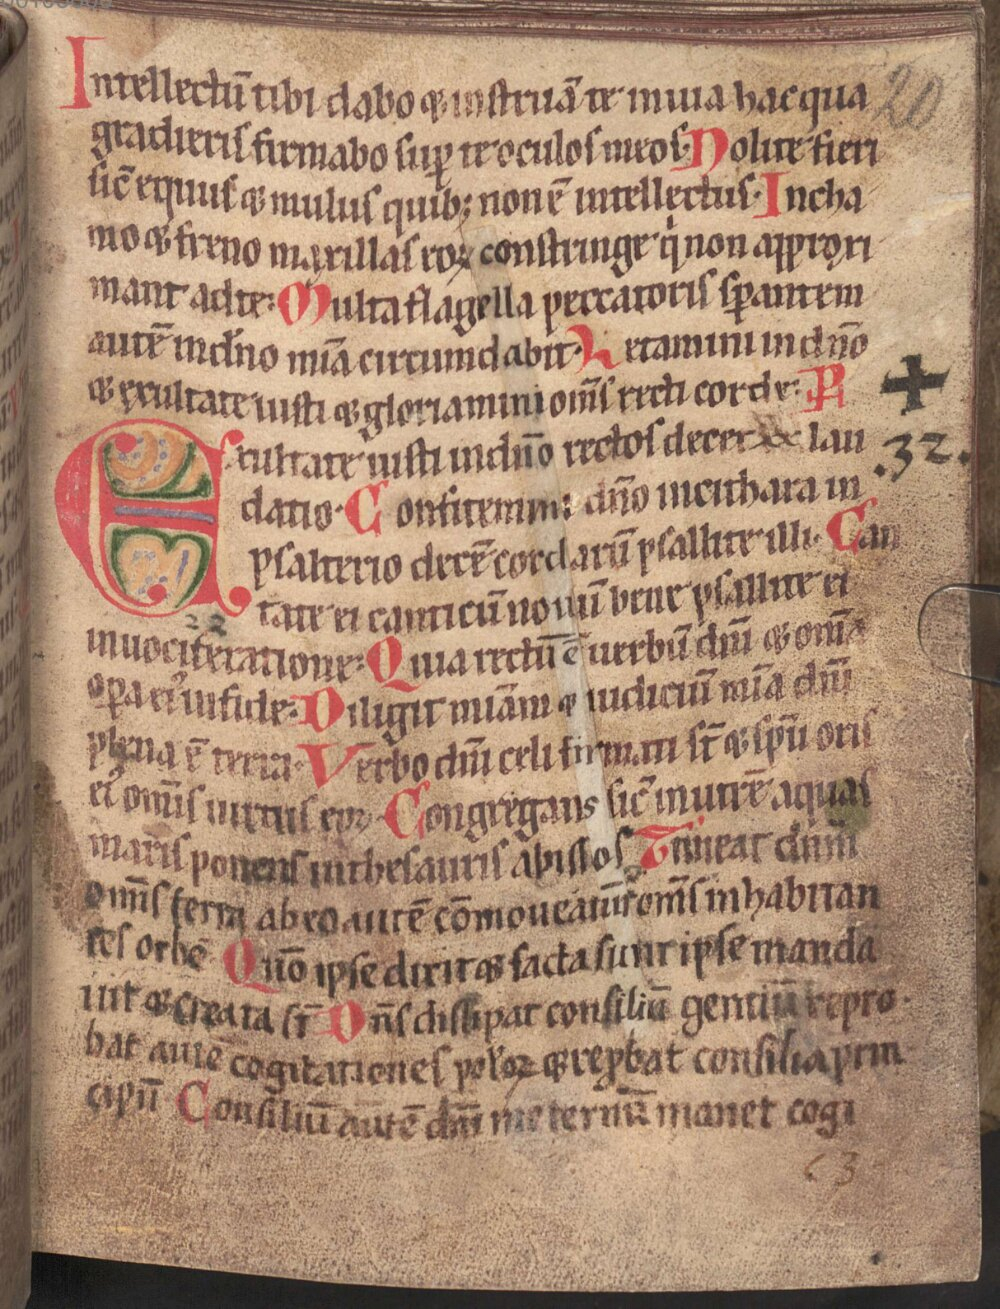 Intellectū tibi dabo ⁊ instruā te in uia hac qua
20
gradieris firmabo sup̄ te oculos meos· Nolite fieri
sic̄ equus ⁊ mulus quib; non ē intellectus· In cha
mo ⁊ freno maxillas eoꝝ constringe qͥ non apꝓxi
mant ad te· Multa flagella peccatoris sꝑantem
autē in dn̄o mīa circumdabit· Letamini in dn̄o
⁊ exultate iusti ⁊ gloriamini om̄s recti corde·
Exultate iusti in dn̄o rectos decet lau
.32.
datio· Confitemini dn̄o in cithara in
psalterio decē cordarū psallite illi· Can
tate ei canticū nouū bene psallite ei
22
in uociferatione· Quia rectū ē uerbū dn̄i ⁊ om̄a
oꝑa eiꝰ in fide· Diligit mīam ⁊ iudiciū mīa dn̄i
plena ē terra· Verbo dn̄i celi firmati st̄ ⁊ sp̄u oris
eiꝰ om̄is uirtus eoꝝ· Congregans sic̄ in utrē aquas
maris ponens in thesauris abissos· Timeat dn̄m
om̄is terra ab eo autē cōmoueant̄ om̄s inhabitan
tes orbē· Qm̄o ipse dixit ⁊ facta sunt ipse manda
uit ⁊ creata st̄ Dn̄s dissipat consiliū gentiū repro·
bat autē cogitationes pploꝝ ⁊ reꝓbat consilia prin
cipū Consiliū autē dn̄i in eternū manet cogi
63